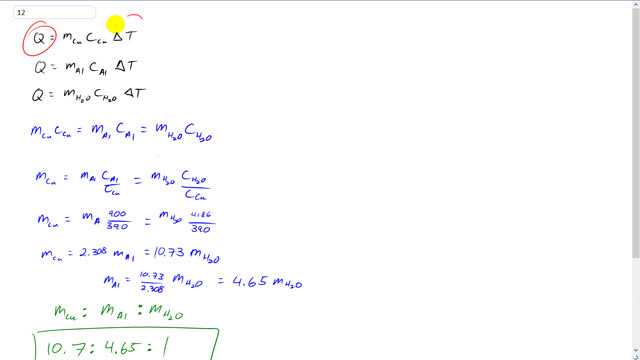 12
Q = m_Cu C_Cu ΔT
Q = m_Al C_Al ΔT
Q = m_H2O C_H2O ΔT
m_Cu C_Cu = m_Al C_Al = m_H2O C_H2O
m_Cu = m_Al C_Al/C_Cu = m_H2O C_H2O/C_Cu
m_Cu = m_A 900/390 = m_H2O 4186/390
m_Cu = 2.308 m_Al = 10.73 m_H2O
m_Al = 10.73/2.308 m_H2O = 4.65 m_H2O
m_Cu : m_Al : m_H2O
10.7 : 4.65 : 1